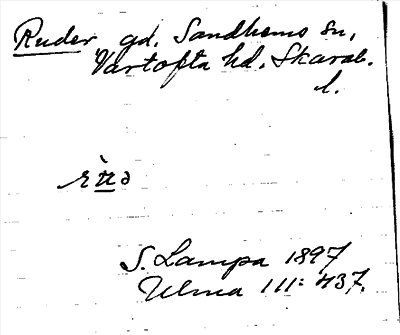 Ruder gd. Sandhems sn,
Vartofta hd. Skarab.
l.
S. Lampa 1897
Ulma 111: 437.